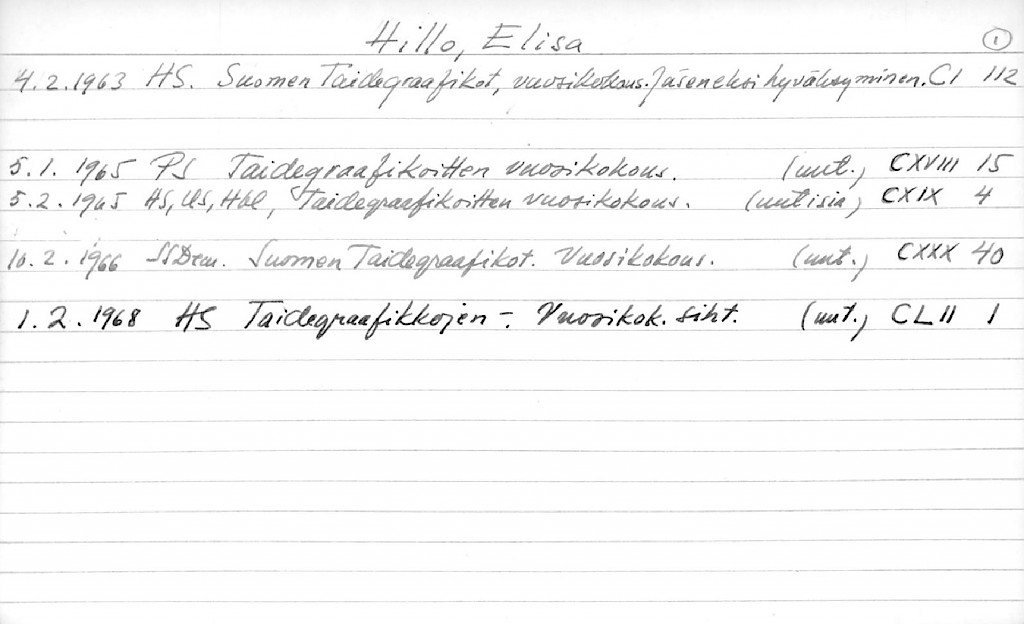 Hillo, Elisa 1
4.2.1963 HS. Suomen Taidegraafikot, vuosikokous. Jäseneksi hyväksyminen. CI 112
5.1.1965 PS Taidegraafikoitten vuosikokous. (uut.) CXVIII 15
5.2.1965 HS, US, Hbl, Taidegraafikoitten vuosikokous. (uutisia) CXIX 4
10.2.1966 SSDem. Suomen Taidegraafikot. Vuosikokous. (uut.) CXXX 40
1.2.1968 HS Taidegraafikkojen -. Vuosikok. siht. (uut.) CLII 1